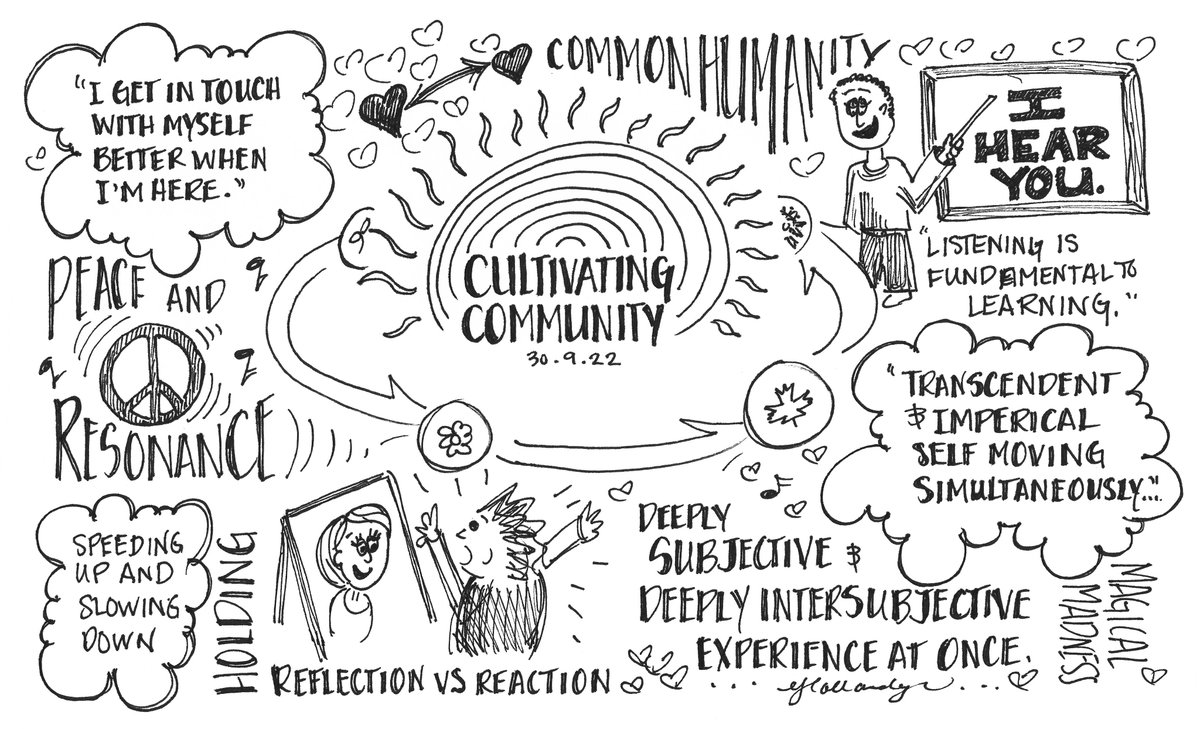 "I GET IN TOUCH
WITH MYSELF
BETTER WHEN
I'M HERE."
COMMON HUMANITY
I
HEAR
YOU.
"LISTENING IS
FUNDEMENTAL TO
LEARNING."
PEACE AND
RESONANCE
CULTIVATING
COMMUNITY
30.9.22
"TRANSCENDENT
& IMPERICAL
SELF MOVING
SIMULTANEOUSLY..."
SPEEDING
UP AND
SLOWING
DOWN
HOLDING
REFLECTION VS REACTION
DEEPLY
SUBJECTIVE &
DEEPLY INTERSUBJECTIVE
EXPERIENCE AT ONCE.
MAGICAL
MADNESS